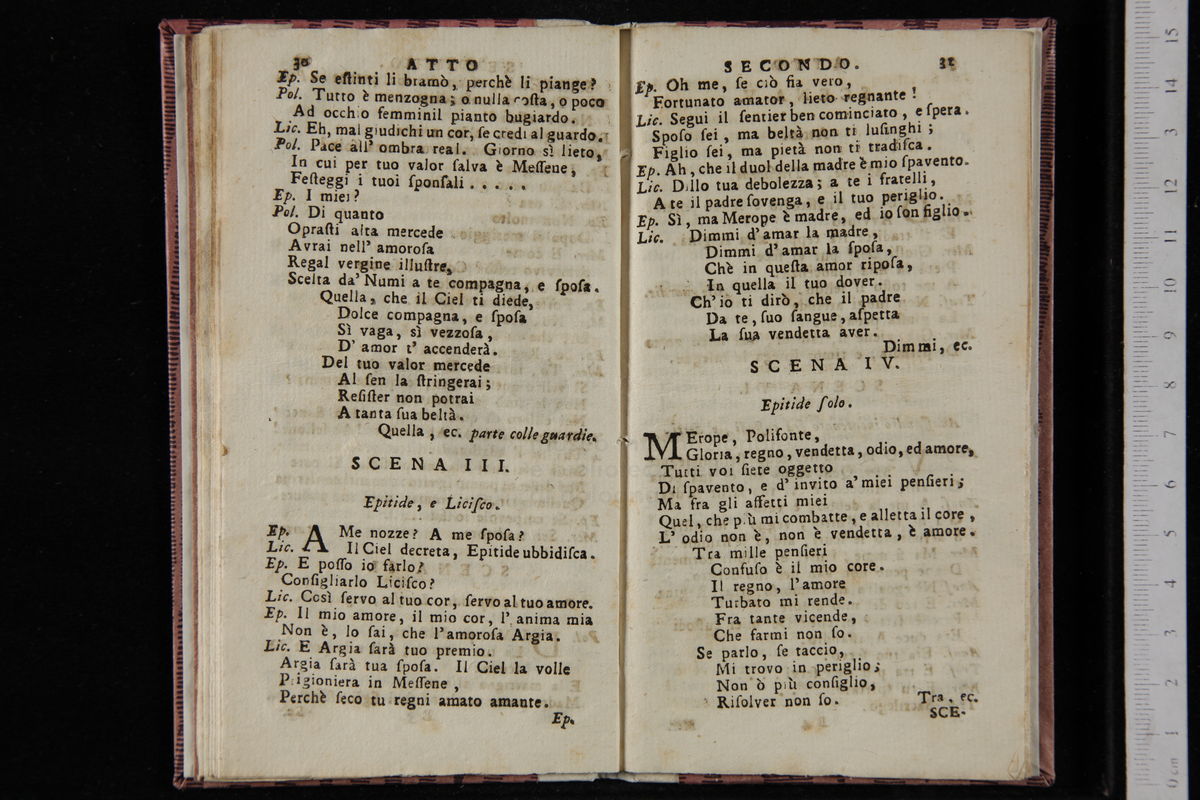 30 ATTO
Ep. Se eſtinti li bramò, perchè li piange?
Pol. Tutto è menzogna; o nulla coſta, o poco
Ad occhio femminil pianto bugiardo.
Lic. Eh, mal giudichi un cor, ſe credi al guardo.
Pol. Pace all' ombra real. Giorno sì lieto,
In cui per tuo valor ſalva è Meſſene,
Feſteggi i tuoi ſponſali . . . . .
Ep. I miei?
Pol. Di quanto
Opraſti alta mercede
Avrai nell' amoroſa
Regal vergine illuſtre,
Scelta da' Numi a te compagna, e ſpoſa.
Quella, che il Ciel ti diede,
Dolce compagna, e ſpoſa
Sì vaga, sì vezzoſa,
D' amor t' accenderà.
Del tuo valor mercede
Al ſen la ſtringerai;
Reſiſter non potrai
A tanta ſua beltà.
Quella, ec. parte colle guardie.
SCENA III.
Epitide, e Liciſco.
Ep. A Me nozze? A me ſpoſa?
Lic. Il Ciel decreta, Epitide ubbidiſca.
Ep. E poſſo io farlo?
Conſigliarlo Liciſco?
Lic. Così ſervo al tuo cor, ſervo al tuo amore.
Ep. Il mio amore, il mio cor, l' anima mia
Non è, lo ſai, che l'amoroſa Argia.
Lic. E Argia ſarà tuo premio.
Argia ſarà tua ſpoſa. Il Ciel la volle
Prigioniera in Meſſene,
Perchè ſeco tu regni amato amante.
Ep.
SECONDO. 31
Ep. Oh me, ſe ciò fia vero,
Fortunato amator, lieto regnante!
Lic. Segui il ſentier ben cominciato, e ſpera.
Spoſo ſei, ma beltà non ti luſinghi;
Figlio ſei, ma pietà non ti tradiſca.
Ep. Ah, che il duol della madre è mio ſpavento.
Lic. Dillo tua debolezza; a te i fratelli,
A te il padre ſovenga, e il tuo periglio.
Ep. Sì, ma Merope è madre, ed io ſon figlio.
Lic. Dimmi d'amar la madre,
Dimmi d'amar la ſpoſa,
Chè in queſta amor ripoſa,
In quella il tuo dover.
Ch'io ti dirò, che il padre
Da te, ſuo ſangue, aſpetta
La ſua vendetta aver.
Dimmi, ec.
SCENA IV.
Epitide ſolo.
MErope, Polifonte,
Gloria, regno, vendetta, odio, ed amore,
Tutti voi ſiete oggetto
Di ſpavento, e d' invito a' miei penſieri;
Ma fra gli affetti miei
Quel, che più mi combatte, e alletta il core,
L' odio non è, non è vendetta, è amore.
Tra mille penſieri
Confuſo è il mio core.
Il regno, l'amore
Turbato mi rende.
Fra tante vicende,
Che farmi non ſo.
Se parlo, ſe taccio,
Mi trovo in periglio;
Non ò più conſiglio,
Riſolver non ſo.
Tra, ec.
SCE-
15
12
11
10
9
8
7
6
5
4
3
2
1
0 cm